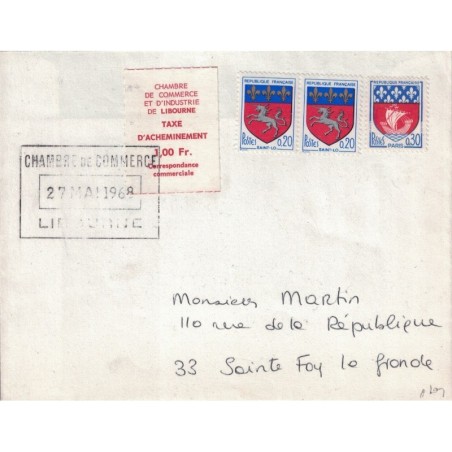 CHAMBRE
DE COMMERCE
ET D'INDUSTRIE
DE LIBOURNE
TAXE
D'ACHEMINEMENT
1,00 Fr.
Correspondance
commerciale
REPUBLIQUE FRANÇAISE
POSTES 0,20
SAINT-LO
REPUBLIQUE FRANÇAISE
POSTES 0,20
SAINT-LO
REPUBLIQUE FRANÇAISE
POSTES 0,30
PARIS
CHAMBRE DE COMMERCE
27 MAI 1968
LIBOURNE
Monsieur Martin
110 rue de la République
33 Sainte Foy la Gironde